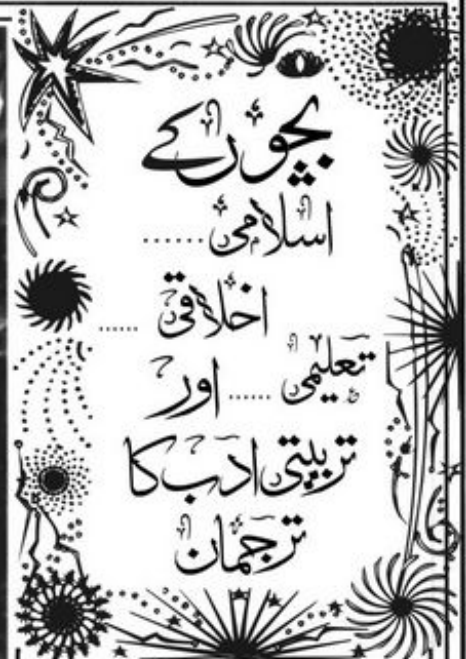 بچوں کے
اسلامی ......
اخلاقی ......
تعلیمی ...... اور
تربیتی ادب کا
ترجمان